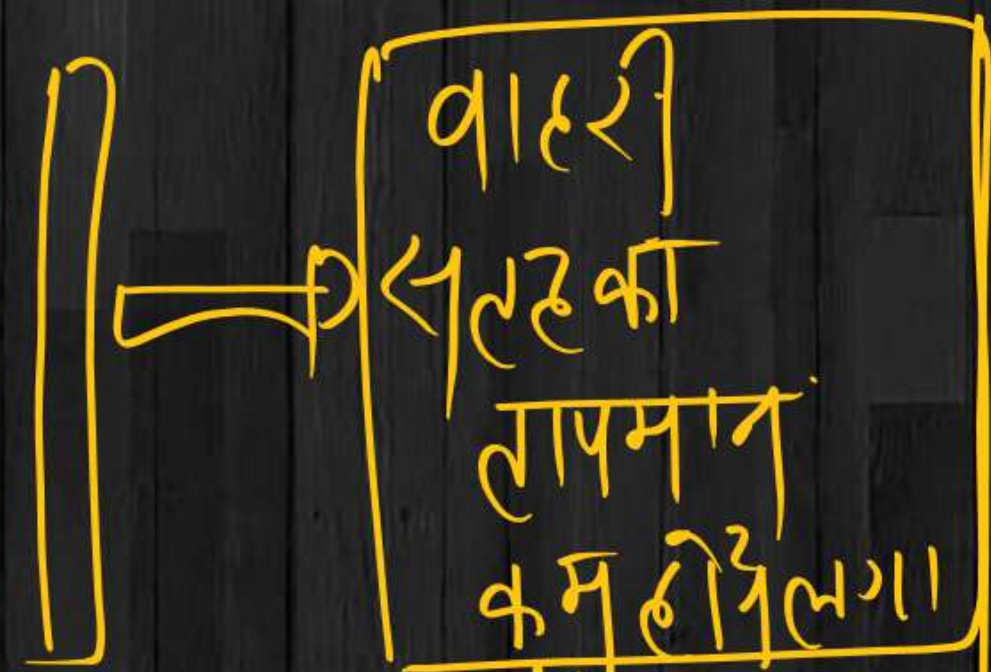 वाहरी
सतह का
तापमान
कम होने लगा